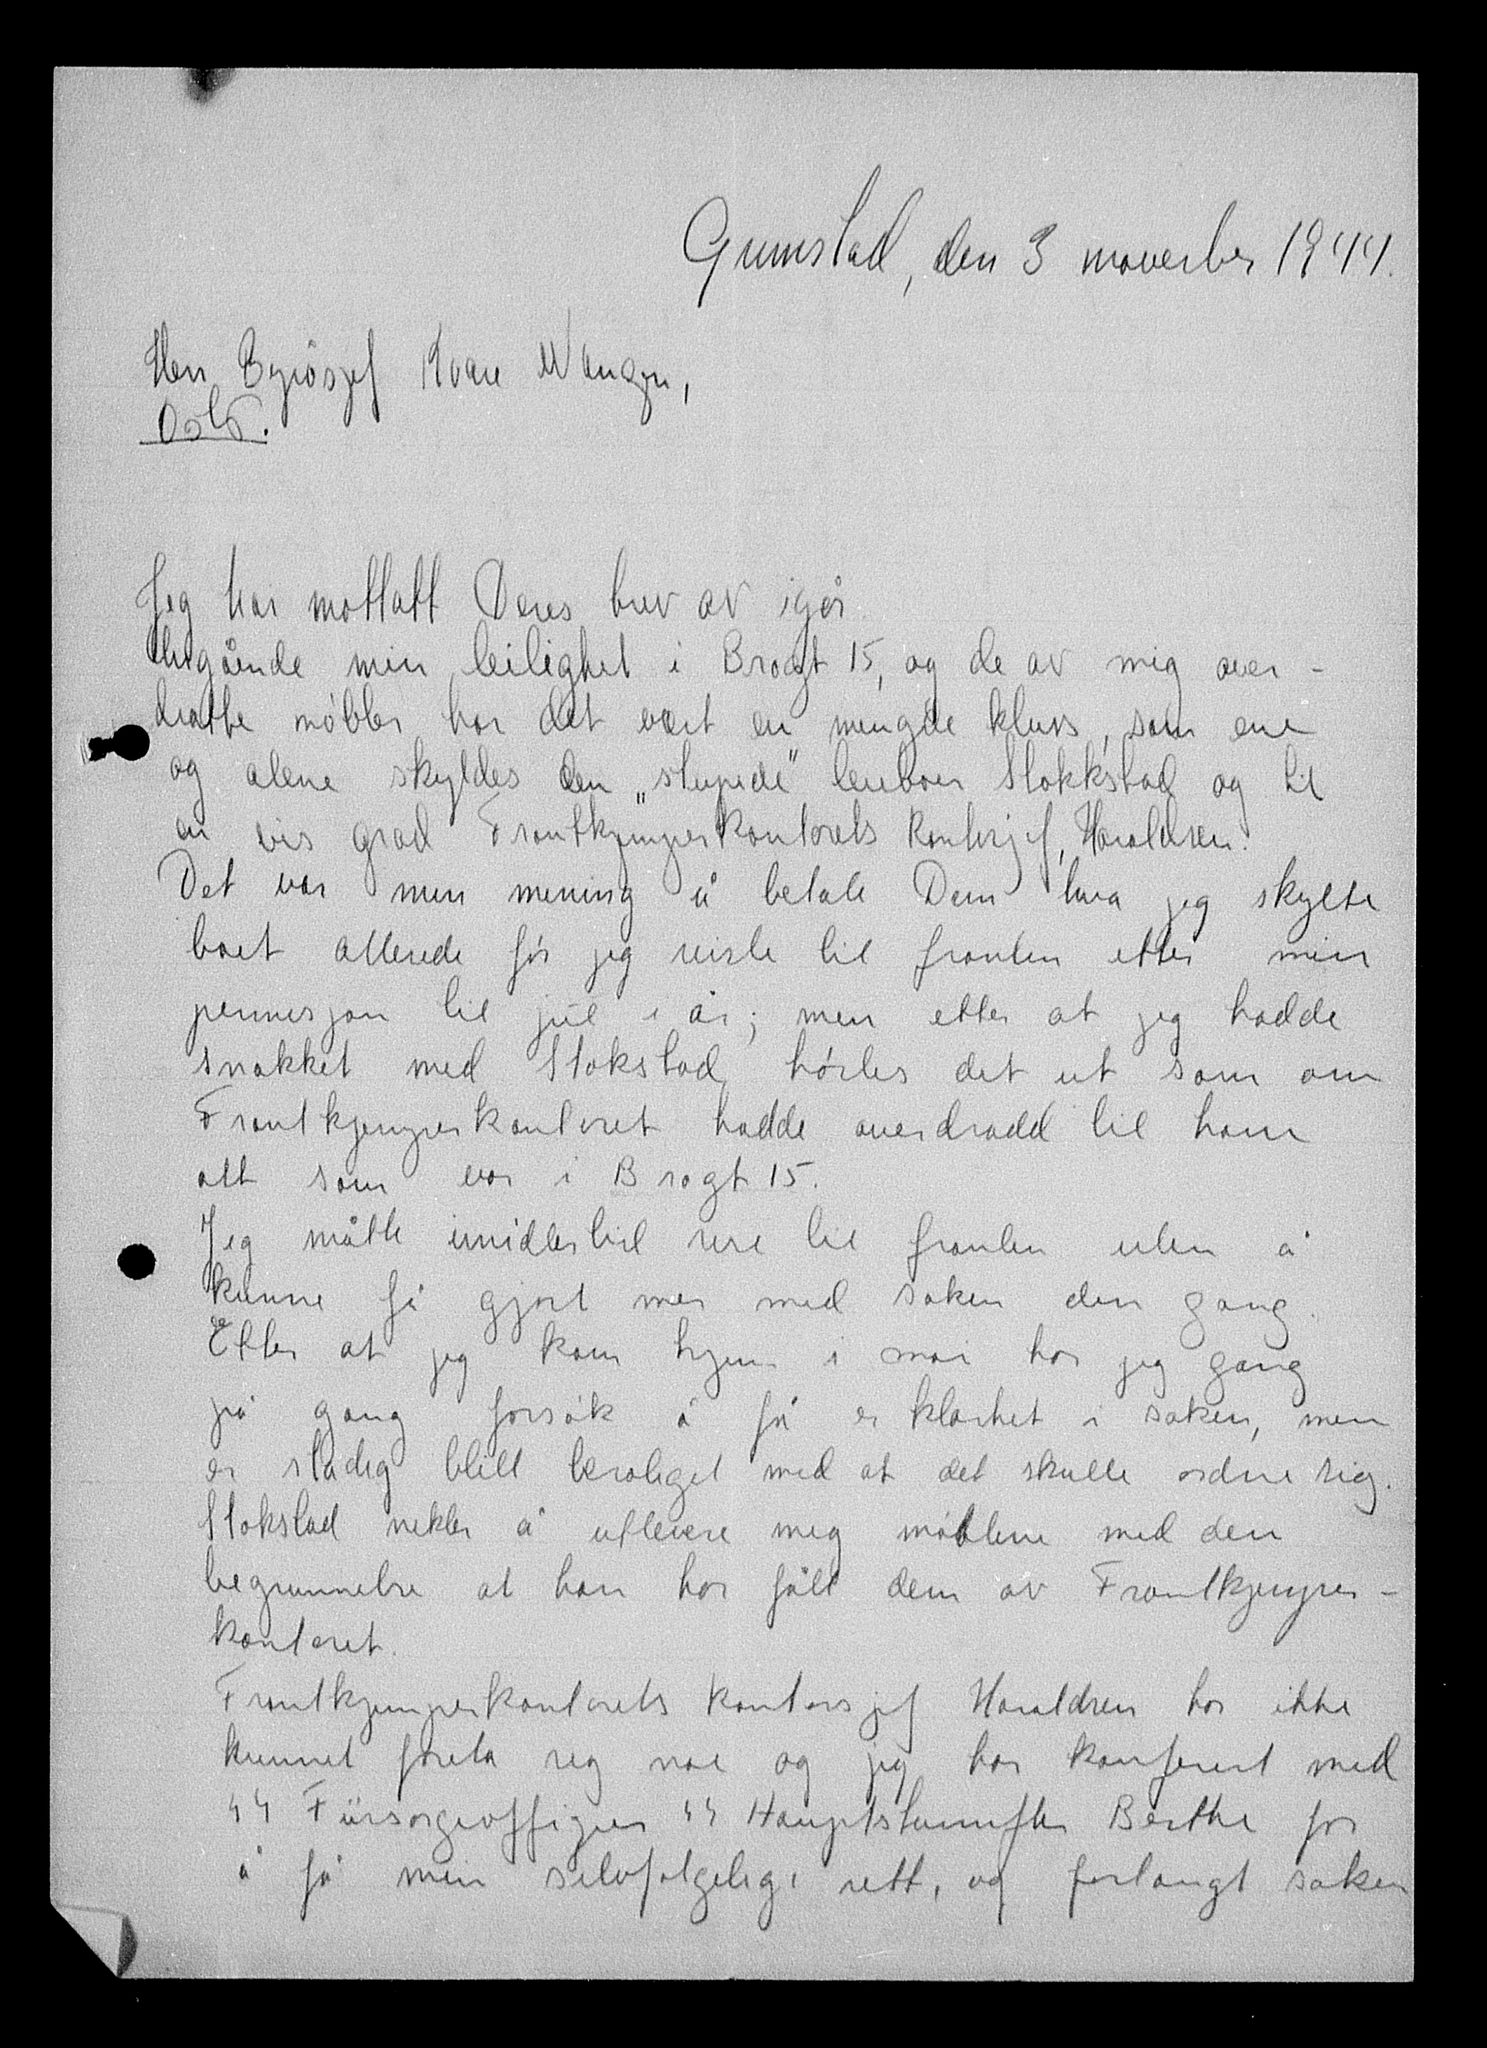 Grimstad, den 3 november 1944.
Herr Byråsjef Kåre Wangen,
Oslo.
Jeg har mottatt Deres brev av igår
angående min leilighet i Brogt 15, og de av mig over-
dratte møbler har det vært en mengde kluss, som ene
og alene skyldes den „stupide" leieboer Stokkstad og til
en vis grad Frontkjemperkontorets kontorsjef, Haraldsen.
Det var min mening å betale Dem hva jeg skylte
boet allerede før jeg reiste til fronten etter min
permisjon til jul i år; men etter at jeg hadde
snakket med Stokstad, hørtes det ut som om
Frontkjemperkontoret hadde overdradd til ham
alt som var i Brogt 15.
Jeg måtte imidlertid reise til fronten uten å
kunne få gjort mer med saken den gang.
Etter at jeg kom hjem i mai har jeg gang
på gang forsøk å få er klarhet i saken, men
er stadig blitt beroliget med at det skulle ordne sig.
Stokstad nekter å utlevere meg møblene med den
begrunnelse at han har fått dem av Frontkjemper-
kontoret.
Frontkjemperkontorets kontorsjef Haraldsen har ikke
kunnet foreta seg noe og jeg har konferert med
SS Fürsorgeoffizier SS Hauptsturmfhr Berthe for
å få min selvfølgelige rett, og forlangt saken